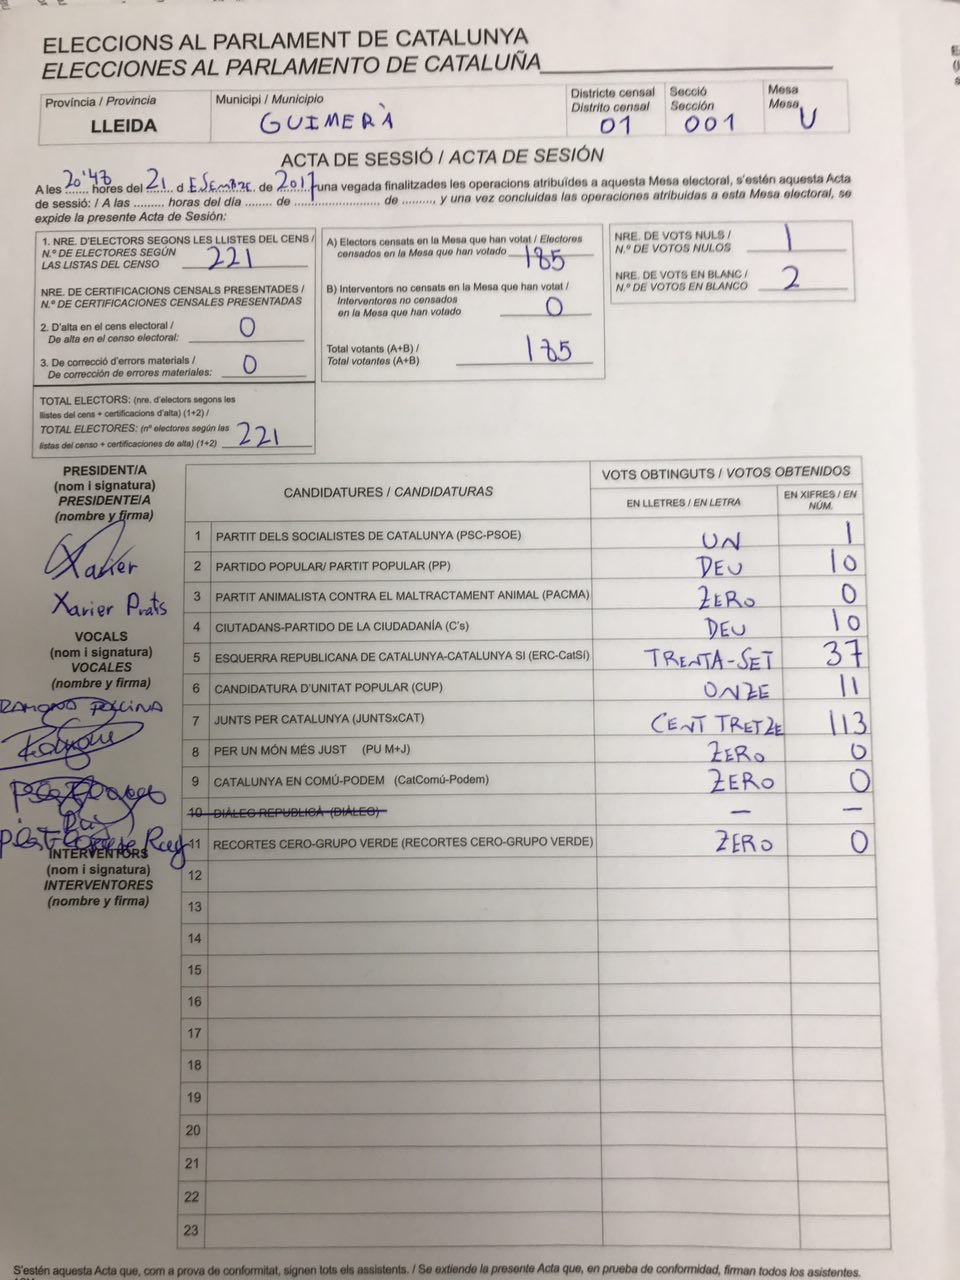 ELECCIONS AL PARLAMENT DE CATALUNYA
ELECCIONES AL PARLAMENTO DE CATALUÑA
Província / Provincia
LLEIDA
Municipi / Municipio
GUIMERÀ
Districte censal
Distrito censal
01
Secció
Sección
001
Mesa
Mesa
U
ACTA DE SESSIÓ / ACTA DE SESIÓN
A les 20'48 hores del 21 d ESEMBRE de 2017 una vegada finalitzades les operacions atribuïdes a aquesta Mesa electoral, s'estén aquesta Acta
de sessió: / A las ......... horas del día ........ de .................... de ........, y una vez concluidas las operaciones atribuidas a esta Mesa electoral, se
expide la presente Acta de Sesión:
1. NRE. D'ELECTORS SEGONS LES LLISTES DEL CENS /
N.º DE ELECTORES SEGÚN
LAS LISTAS DEL CENSO 221
NRE. DE CERTIFICACIONS CENSALS PRESENTADES /
N.º DE CERTIFICACIONES CENSALES PRESENTADAS
2. D'alta en el cens electoral /
De alta en el censo electoral: 0
3. De correcció d'errors materials /
De corrección de errores materiales: 0
TOTAL ELECTORS: (nre. d'electors segons les
llistes del cens + certificacions d'alta) (1+2) /
TOTAL ELECTORES: (nº electores según las
listas del censo + certificaciones de alta) (1+2) 221
A) Electors censats en la Mesa que han votat / Electores
censados en la Mesa que han votado 185
B) Interventors no censats en la Mesa que han votat /
Interventores no censados
en la Mesa que han votado 0
Total votants (A+B) /
Total votantes (A+B) 185
NRE. DE VOTS NULS /
N.º DE VOTOS NULOS 1
NRE. DE VOTS EN BLANC /
N.º DE VOTOS EN BLANCO 2
PRESIDENT/A
(nom i signatura)
PRESIDENTE/A
(nombre y firma)
Xavier
Xavier Prats
VOCALS
(nom i signatura)
VOCALES
(nombre y firma)
INTERVENTORS
(nom i signatura)
INTERVENTORES
(nombre y firma)
CANDIDATURES / CANDIDATURAS
VOTS OBTINGUTS / VOTOS OBTENIDOS
EN LLETRES / EN LETRA
EN XIFRES / EN NÚM.
1 PARTIT DELS SOCIALISTES DE CATALUNYA (PSC-PSOE) UN 1
2 PARTIDO POPULAR/ PARTIT POPULAR (PP) DEU 10
3 PARTIT ANIMALISTA CONTRA EL MALTRACTAMENT ANIMAL (PACMA) ZERO 0
4 CIUTADANS-PARTIDO DE LA CIUDADANÍA (C's) DEU 10
5 ESQUERRA REPUBLICANA DE CATALUNYA-CATALUNYA SÍ (ERC-CatSí) TRENTA-SET 37
6 CANDIDATURA D'UNITAT POPULAR (CUP) ONZE 11
7 JUNTS PER CATALUNYA (JUNTSxCAT) CENT TRETZE 113
8 PER UN MÓN MÉS JUST (PU M+J) ZERO 0
9 CATALUNYA EN COMÚ-PODEM (CatComú-Podem) ZERO 0
10 DIÀLEG REPUBLICÀ (DIÀLEG) — —
11 RECORTES CERO-GRUPO VERDE (RECORTES CERO-GRUPO VERDE) ZERO 0
12
13
14
15
16
17
18
19
20
21
22
23
S'estén aquesta Acta que, com a prova de conformitat, signen tots els assistents. / Se extiende la presente Acta que, en prueba de conformidad, firman todos los asistentes.